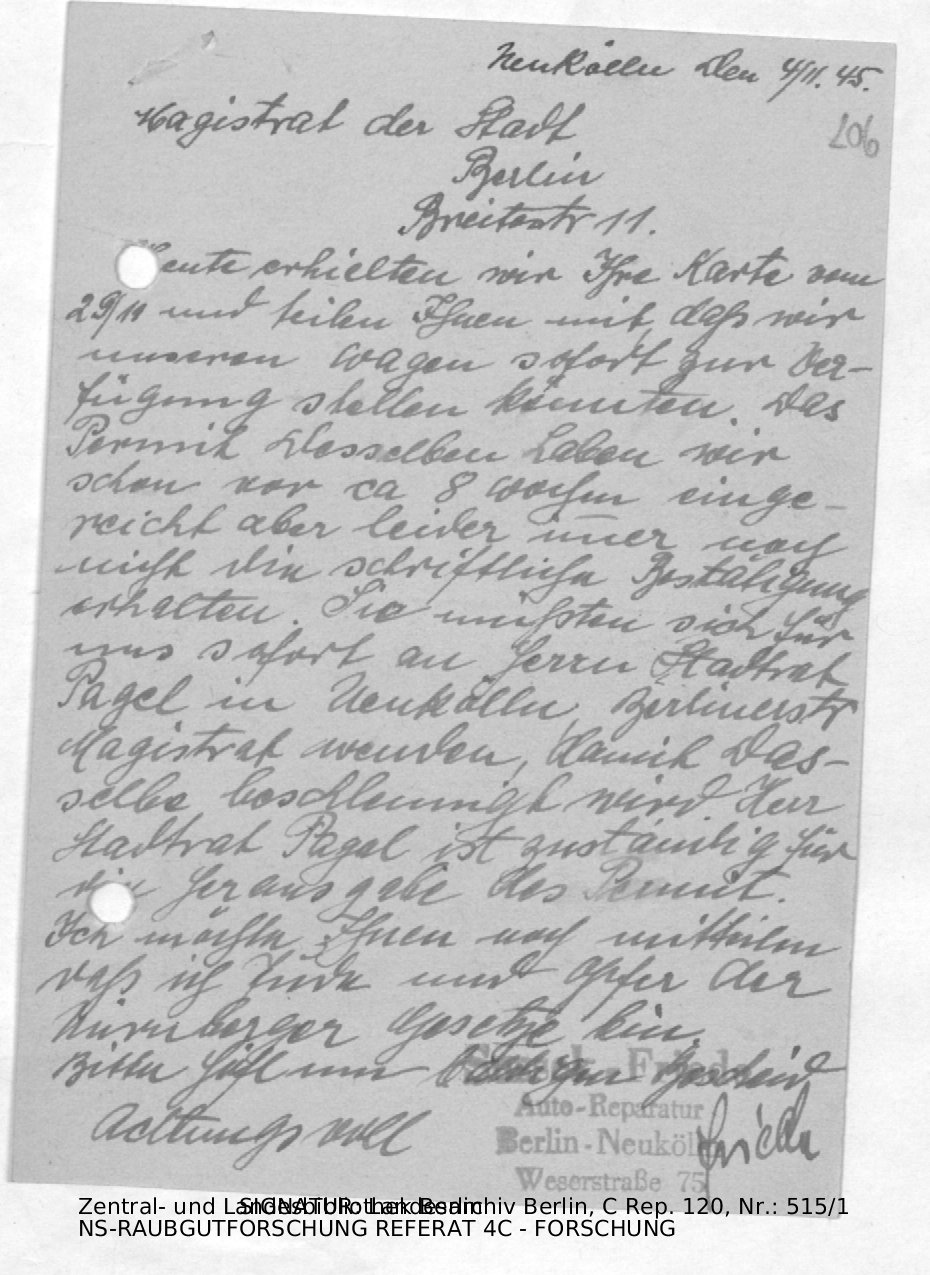 Neukölln den 4/11. 45.
206
Magistrat der Stadt
Berlin
Breitestr 11.
Heute erhielten wir Ihre Karte vom
29/10 und teilen Ihnen mit, daß wir
unseren Wagen sofort zur Ver-
fügung stellen könnten. Das
Permit desselben haben wir
schon vor ca 8 Wochen einge-
reicht aber leider im̅er noch
nicht die schriftliche Bestätigung
erhalten. Sie müßten sich für
uns sofort an Herrn Stadtrat
Pagel in Neukölln, Berlinerstr
Magistrat wenden, damit das-
selbe beschleunigt wird. Herr
Stadtrat Pagel ist zuständig für
die Herausgabe des Permit.
Ich möchte Ihnen noch mitteilen
daß ich Jude und Opfer der
Nürnberger Gesetze bin.
Bitte höfl um Bescheid
Achtungsvoll
Auto-Reparatur
Berlin-Neukölln
Weserstraße 75
Zentral- und Landesbibliothek Berlin
SIGNATUR: Landesarchiv Berlin, C Rep. 120, Nr.: 515/1
NS-RAUBGUTFORSCHUNG REFERAT 4C - FORSCHUNG